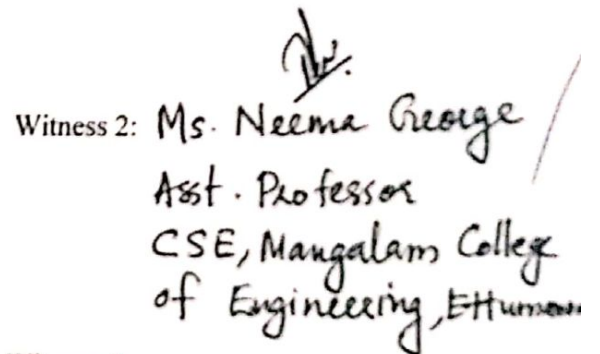 Witness 2: Ms. Neema George
Asst. Professor
CSE, Mangalam College
of Engineering,